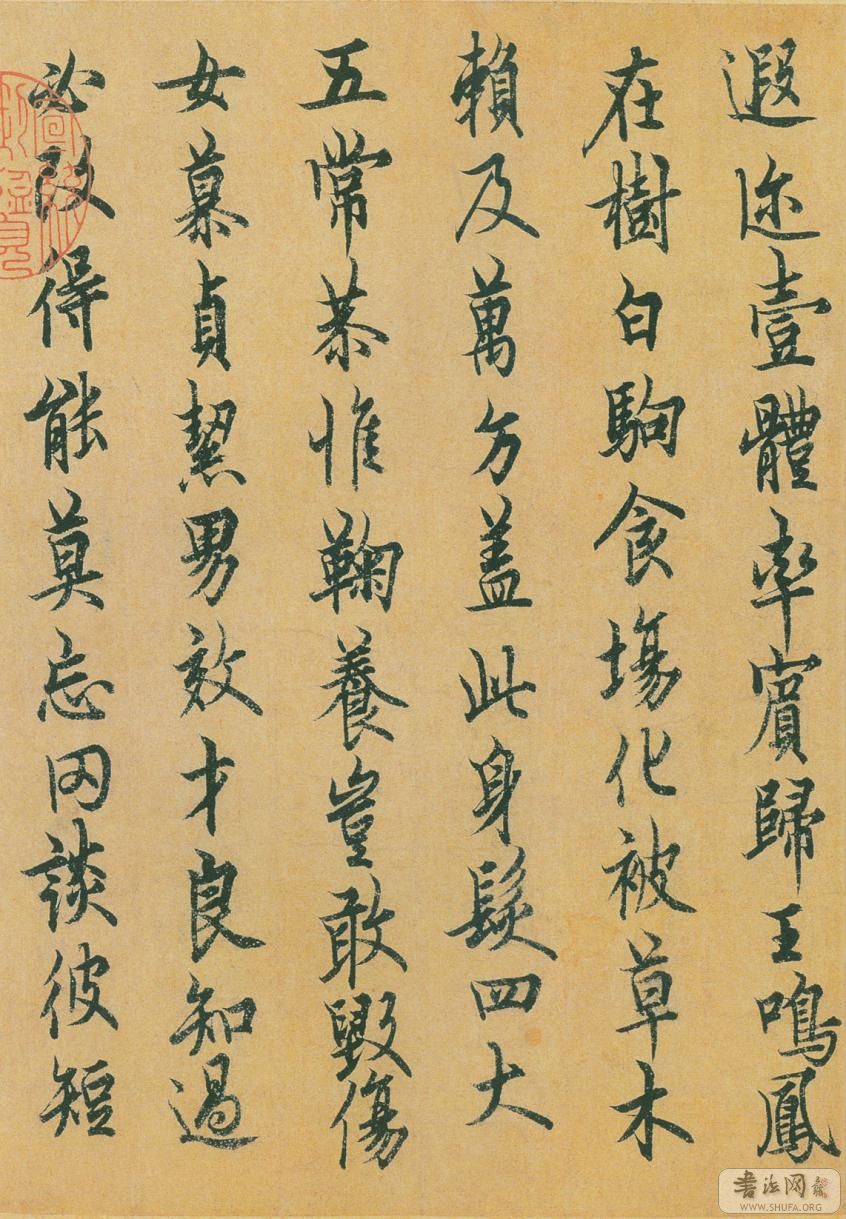 遐迩壹體率賓歸王鳴鳳
在樹白駒食場化被草木
賴及萬方蓋此身髮四大
五常恭惟鞠養豈敢毀傷
女慕貞絜男效才良知過
必改得能莫忘罔談彼短
書法网
WWW.SHUFA.ORG